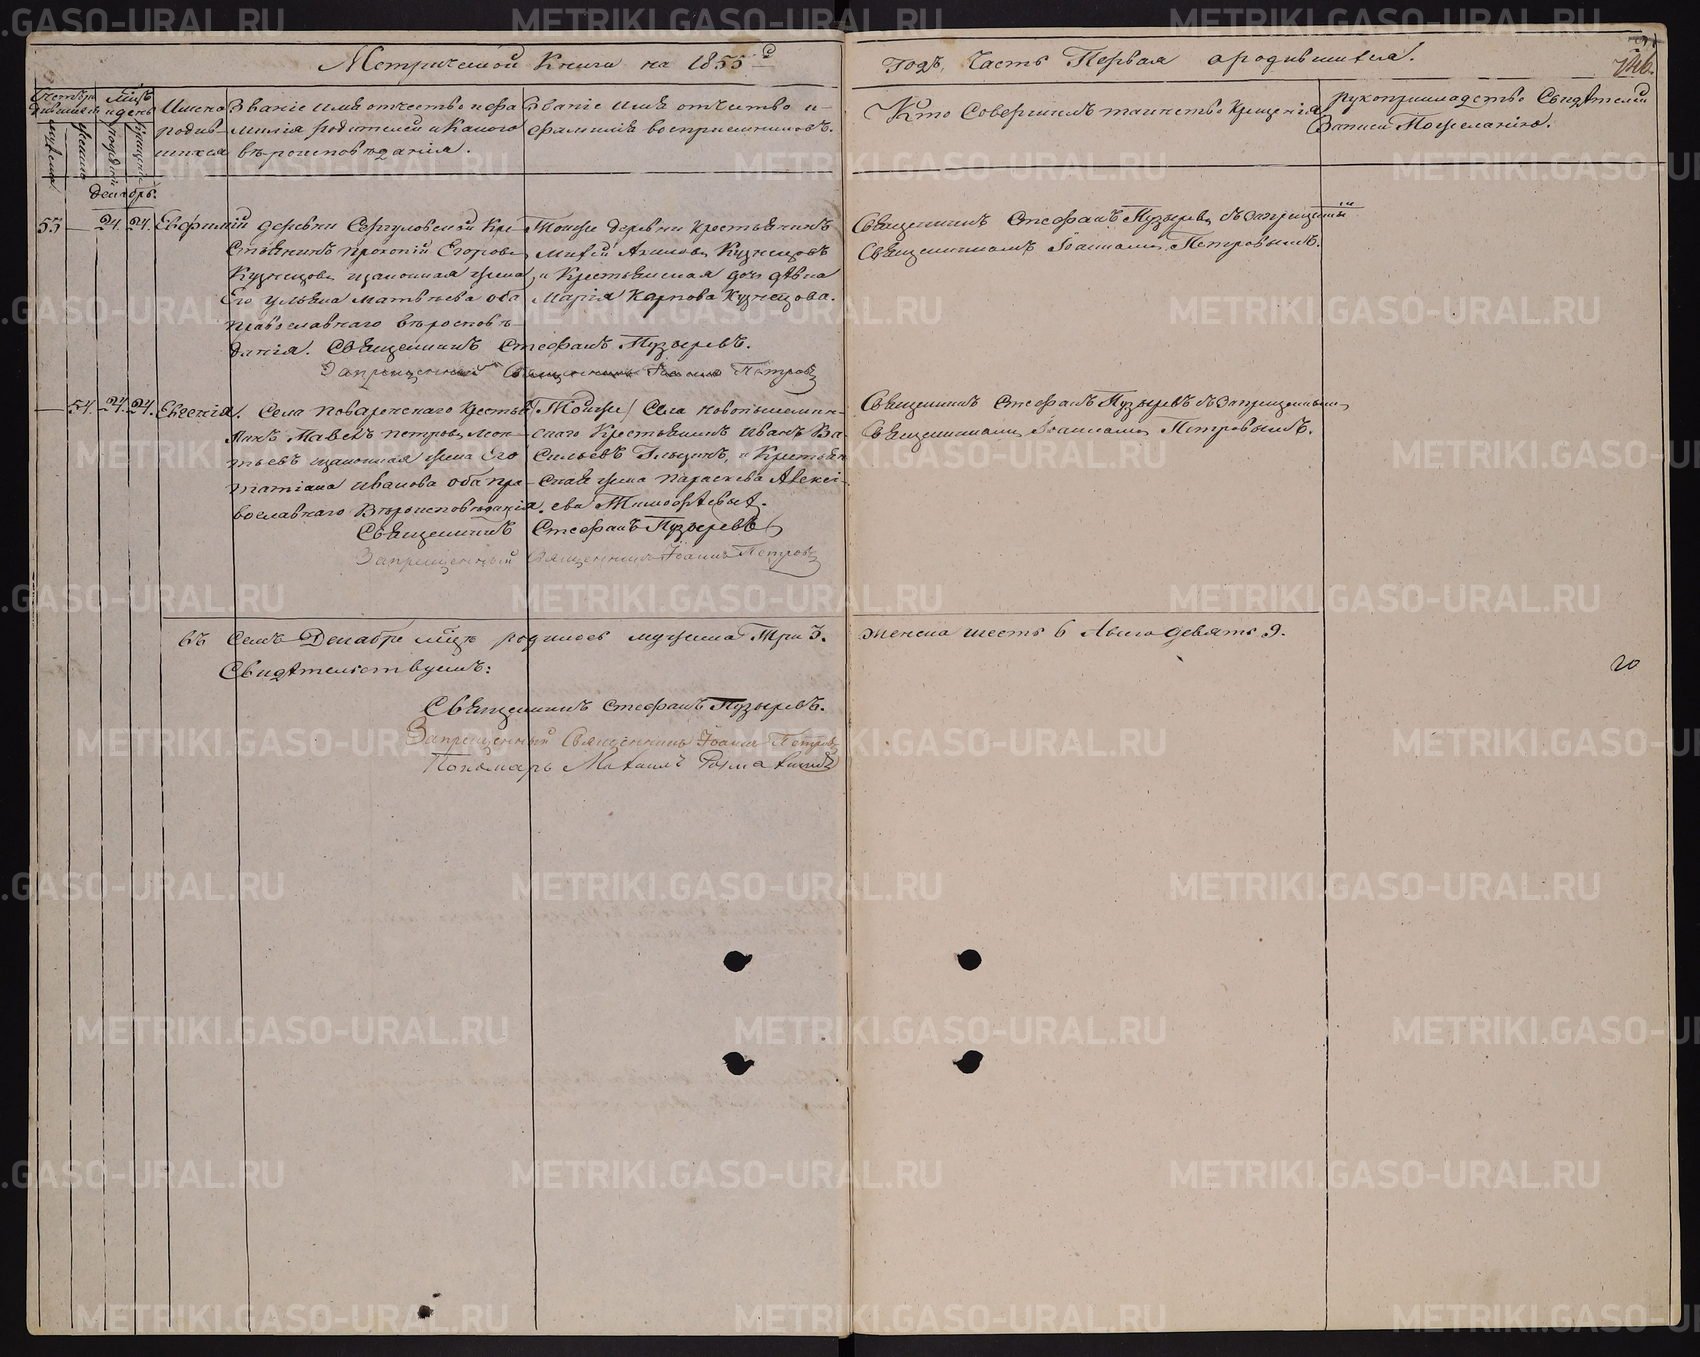 Метрической Книги на 1855й
Годъ, Часть Первая о родившихся.
Мцъ и день
Имена родившихся
Званіе имя отчество и фамилія родителей и Какого вѣроисповѣданія.
Званіе имя отчество и фамилія воспріемниковъ.
Кто Совершилъ таинство Крещенія
Рукоприкладство Свидѣтелей Записи По желанію.
Декабрь.
53 — 24. 24. Евфимій
деревни Кре-
стьянинъ Прокопій Егоровъ
Кузнецовъ законная жена
Его Ульяна Матвѣева оба
православнаго вѣроисповѣ-
данія. Священникъ Стефанъ Пузыревъ.
Запрещенный Священникъ Іоаннъ Петровъ
Тойже деревни Крестьянинъ
Кузнецовъ
и Крестьянская дочь дѣвка
Марія Карпова Кузнецова.
Священникъ Стефанъ Пузыревъ съ Запрещеннымъ
Священникомъ Іоанномъ Петровымъ.
— 54. 24. 24. Евгенія.
Села Поваренскаго Крестья-
нинъ Павелъ Петровъ Леон-
тьевъ законная жена Его
Татіана Иванова оба пра-
вославнаго Вѣроисповѣданія.
Священникъ Стефанъ Пузыревъ
Запрещенный Священникъ Іоаннъ Петровъ
Тойже Села Новопышмин-
скаго Крестьянинъ Иванъ Ва-
сильевъ и Крестьян-
ская жена Параскева Алексѣ-
ева Тимофѣевыхъ.
Священникъ Стефанъ Пузыревъ съ Запрещеннымъ
Священникомъ Іоанномъ Петровымъ.
Въ Семъ Декабрѣ мцѣ родилось мужеска Три 3.
женска шесть 6 Обоего девять 9.
Свидѣтельствуемъ:
Священникъ Стефанъ Пузыревъ.
Запрещенный Священникъ Іоаннъ Петровъ
Пономарь Михаилъ
20
METRIKI.GASO-URAL.RU